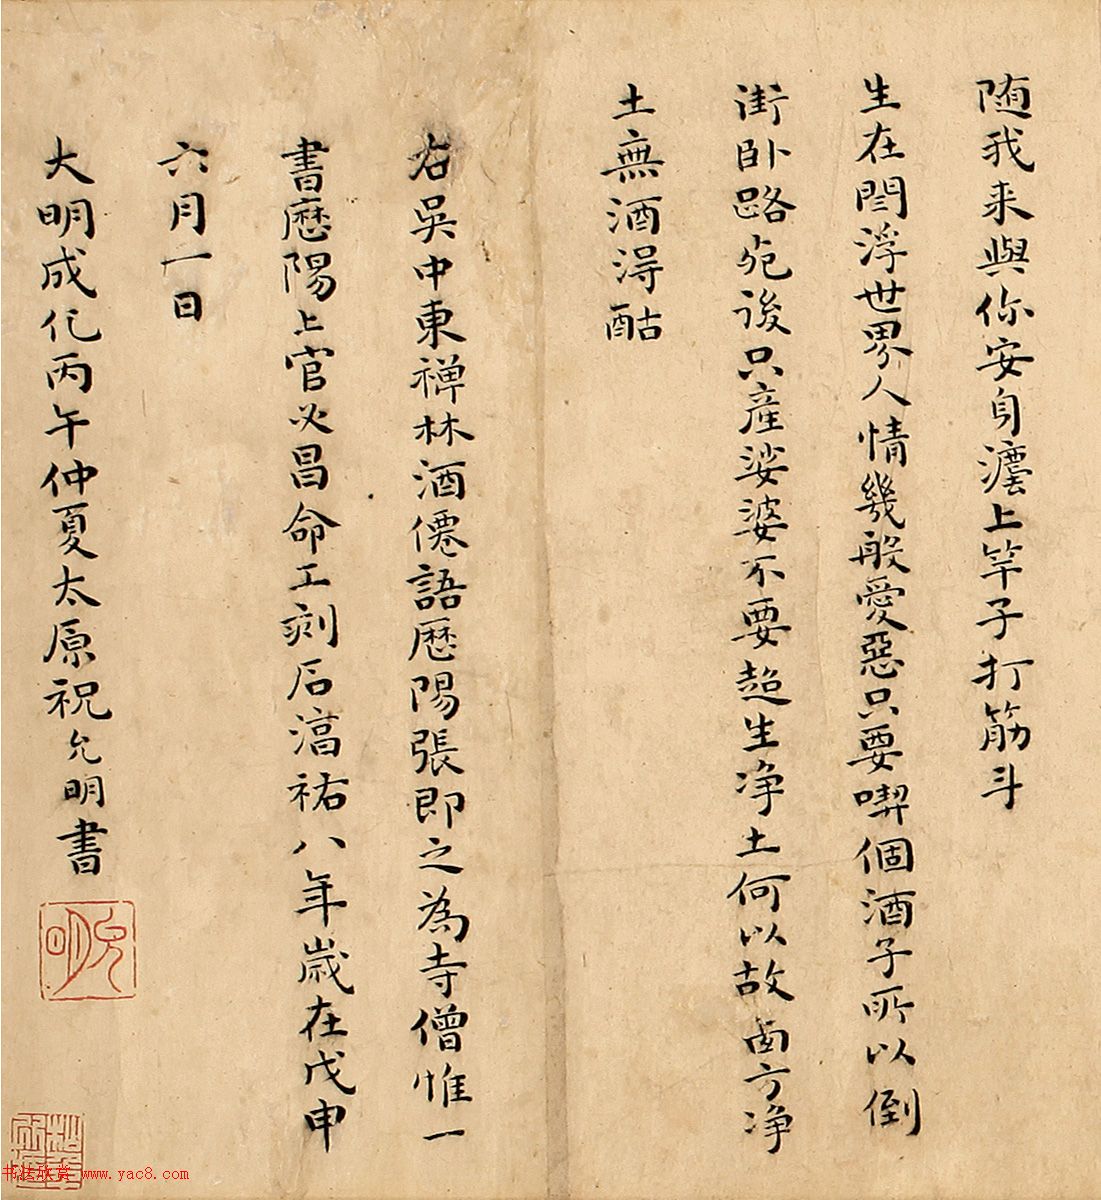 随我来與你安身瀍上竿子打筋斗
生在閻浮世界人情幾般愛惡只要喫個酒子所以倒
街卧路死後只產娑婆不要超生淨土何以故西方淨
土無酒得酤
右吳中東禅林酒僊語歷陽張即之為寺僧惟一
書歷陽上官必昌命工刻石淳祐八年歲在戊申
六月一日
大明成化丙午仲夏太原祝允明書
允明
书法欣赏 www.yac8.com